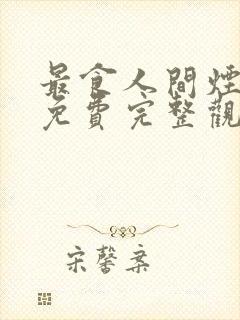 最食人間煙
免費完整觀
宋馨案